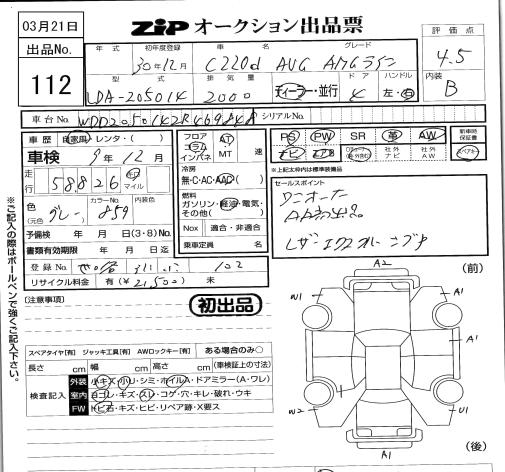 03月21日
ZIP オークション出品票
出品No. 112
年式 初年度登録 車名 グレード
30年12月 C220d AVG AMGライン
評価点 4.5
型式 排気量 ドア ハンドル
LDA-205014 2000 ディーラー・並行 4 左・右
内装 B
車台No. WDD2050142R469848 シリアルNo.
車歴 自家用・レンタ・( )
車検 9年12月
走行 58,826 km マイル
色 (元色) グレー カラーNo. 859 内装色
予備検 年 月 日(3・8)No.
書類有効期限 年 月 日迄
登録No. 102
リサイクル料金 有(¥21,500) 未
フロア コラム インパネ AT MT 速
冷房 無・C・AC・AAC( )
燃料 ガソリン・軽油・電気・その他( )
Nox 適合・非適合
乗車定員 名
PS PW SR 革 AW 新車時保証書
ナビ 社外ナビ 社外AW
＊上記太枠内は標準装備品
セールスポイント
ワンオーナー
レザーエクスクルーシブP
(注意事項)
初出品
※ご記入の際はボールペンで強くご記入下さい。
スペアタイヤ[有] ジャッキ工具[有] AWロックキー[有] ある場合のみ○
長さ cm 幅 cm 高さ cm (車検証上の寸法)
検査記入
外装 小キズ・小リ・シミ・ホイルA・ドアミラー(A・ワレ)
室内 ヨゴレ・キズ・スレ・コゲ・穴・キレ・破れ・ウキ
FW トビ石・キズ・ヒビ・リペア跡・X要ス
(前)
A2
W1 A1
A1
W2 U1
A1
(後)